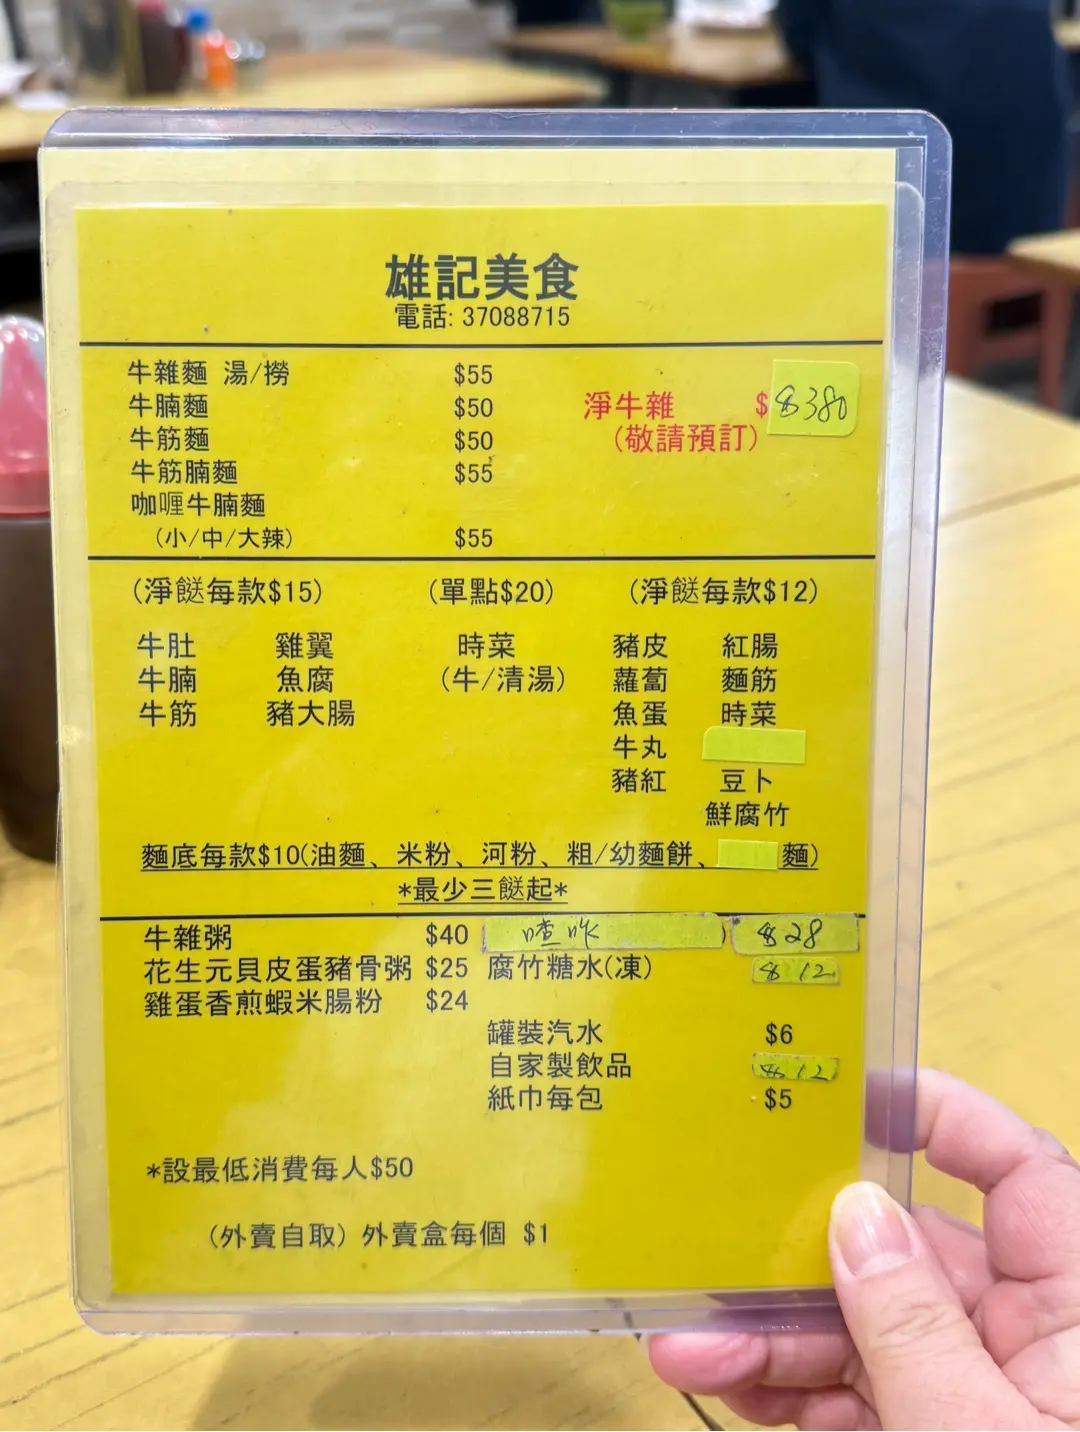 雄記美食
電話: 37088715
牛雜麵 湯/撈 $55
牛腩麵 $50
牛筋麵 $50
牛筋腩麵 $55
咖喱牛腩麵
(小/中/大辣) $55
淨牛雜 $ $380
(敬請預訂)
(淨餸每款$15) (單點$20) (淨餸每款$12)
牛肚 雞翼 時菜 豬皮 紅腸
牛腩 魚腐 (牛/清湯) 蘿蔔 麵筋
牛筋 豬大腸 魚蛋 時菜
牛丸
豬紅 豆卜
鮮腐竹
麵底每款$10(油麵、米粉、河粉、粗/幼麵餅、麵)
*最少三餸起*
牛雜粥 $40 喳咋 ) $28
花生元貝皮蛋豬骨粥 $25 腐竹糖水(凍) $12
雞蛋香煎蝦米腸粉 $24
罐裝汽水 $6
自家製飲品 $12
紙巾每包 $5
*設最低消費每人$50
(外賣自取) 外賣盒每個 $1